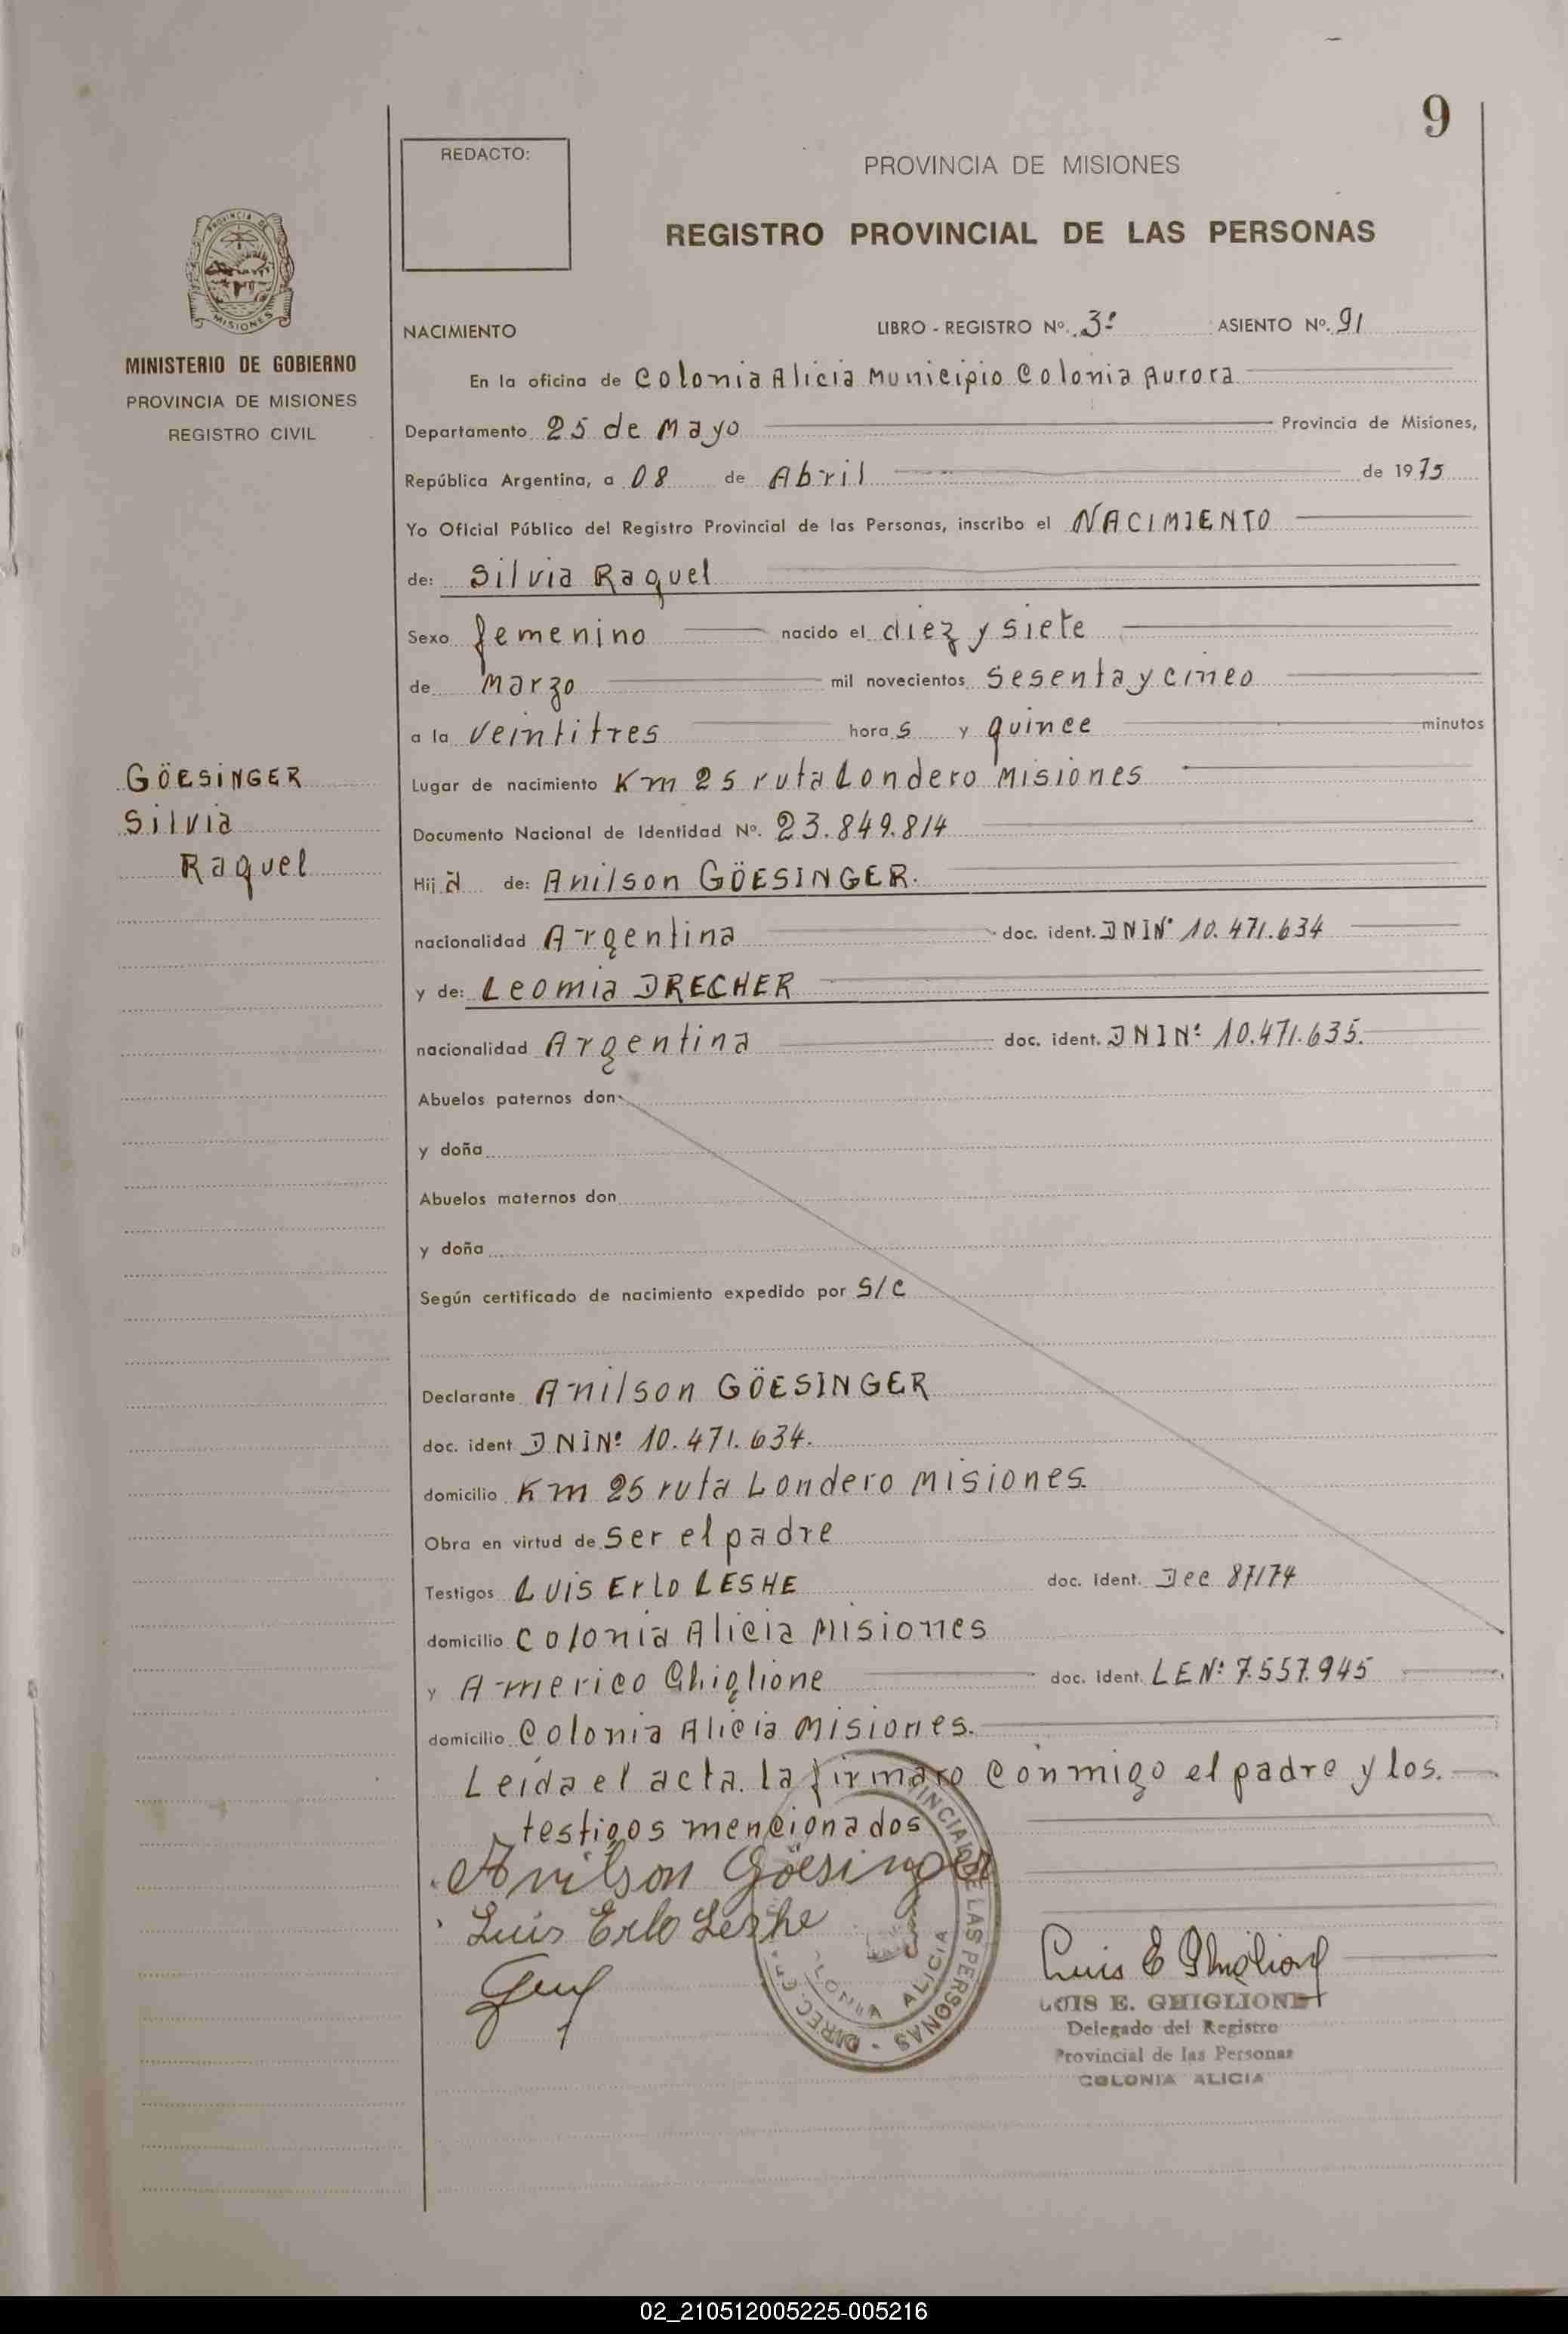 9
REDACTO:
PROVINCIA DE MISIONES
REGISTRO PROVINCIAL DE LAS PERSONAS
PROVINCIA DE
MISIONES
MINISTERIO DE GOBIERNO
PROVINCIA DE MISIONES
REGISTRO CIVIL
NACIMIENTO LIBRO - REGISTRO Nº. 3º ASIENTO Nº. 91
En la oficina de Colonia Alicia Municipio Colonia Aurora
Departamento 25 de Mayo Provincia de Misiones,
República Argentina, a 08 de Abril de 1975
Yo Oficial Público del Registro Provincial de las Personas, inscribo el NACIMIENTO
de: Silvia Raquel
Sexo femenino nacido el diez y siete
de Marzo mil novecientos sesenta y cinco
a la veintitres horas y quince minutos
GÖESINGER
Silvia
Raquel
Lugar de nacimiento Km 25 ruta Londero Misiones
Documento Nacional de Identidad Nº. 23.849.814
Hija de: Anilson GÖESINGER.
nacionalidad Argentina doc. ident. DNI Nº 10.471.634
y de: Leomia DRECHER
nacionalidad Argentina doc. ident. DNI Nº 10.471.635.
Abuelos paternos don
y doña
Abuelos maternos don
y doña
Según certificado de nacimiento expedido por S/C
Declarante Anilson GÖESINGER
doc. ident DNI Nº 10.471.634.
domicilio Km 25 ruta Londero Misiones.
Obra en virtud de Ser el padre
Testigos LUIS Erlo LESHE doc. Ident. Dec 87174
domicilio Colonia Alicia Misiones
y Americo Ghiglione doc. Ident. LE Nº 7.557.945
domicilio Colonia Alicia Misiones.
Leída el acta. la firmaro conmigo el padre y los.
testigos mencionados
Anilson Göesinger
Luis Erlo Leshe
Luis E Ghiglione
LUIS E. GHIGLIONE
Delegado del Registro
Provincial de las Personas
COLONIA ALICIA
02_210512005225-005216